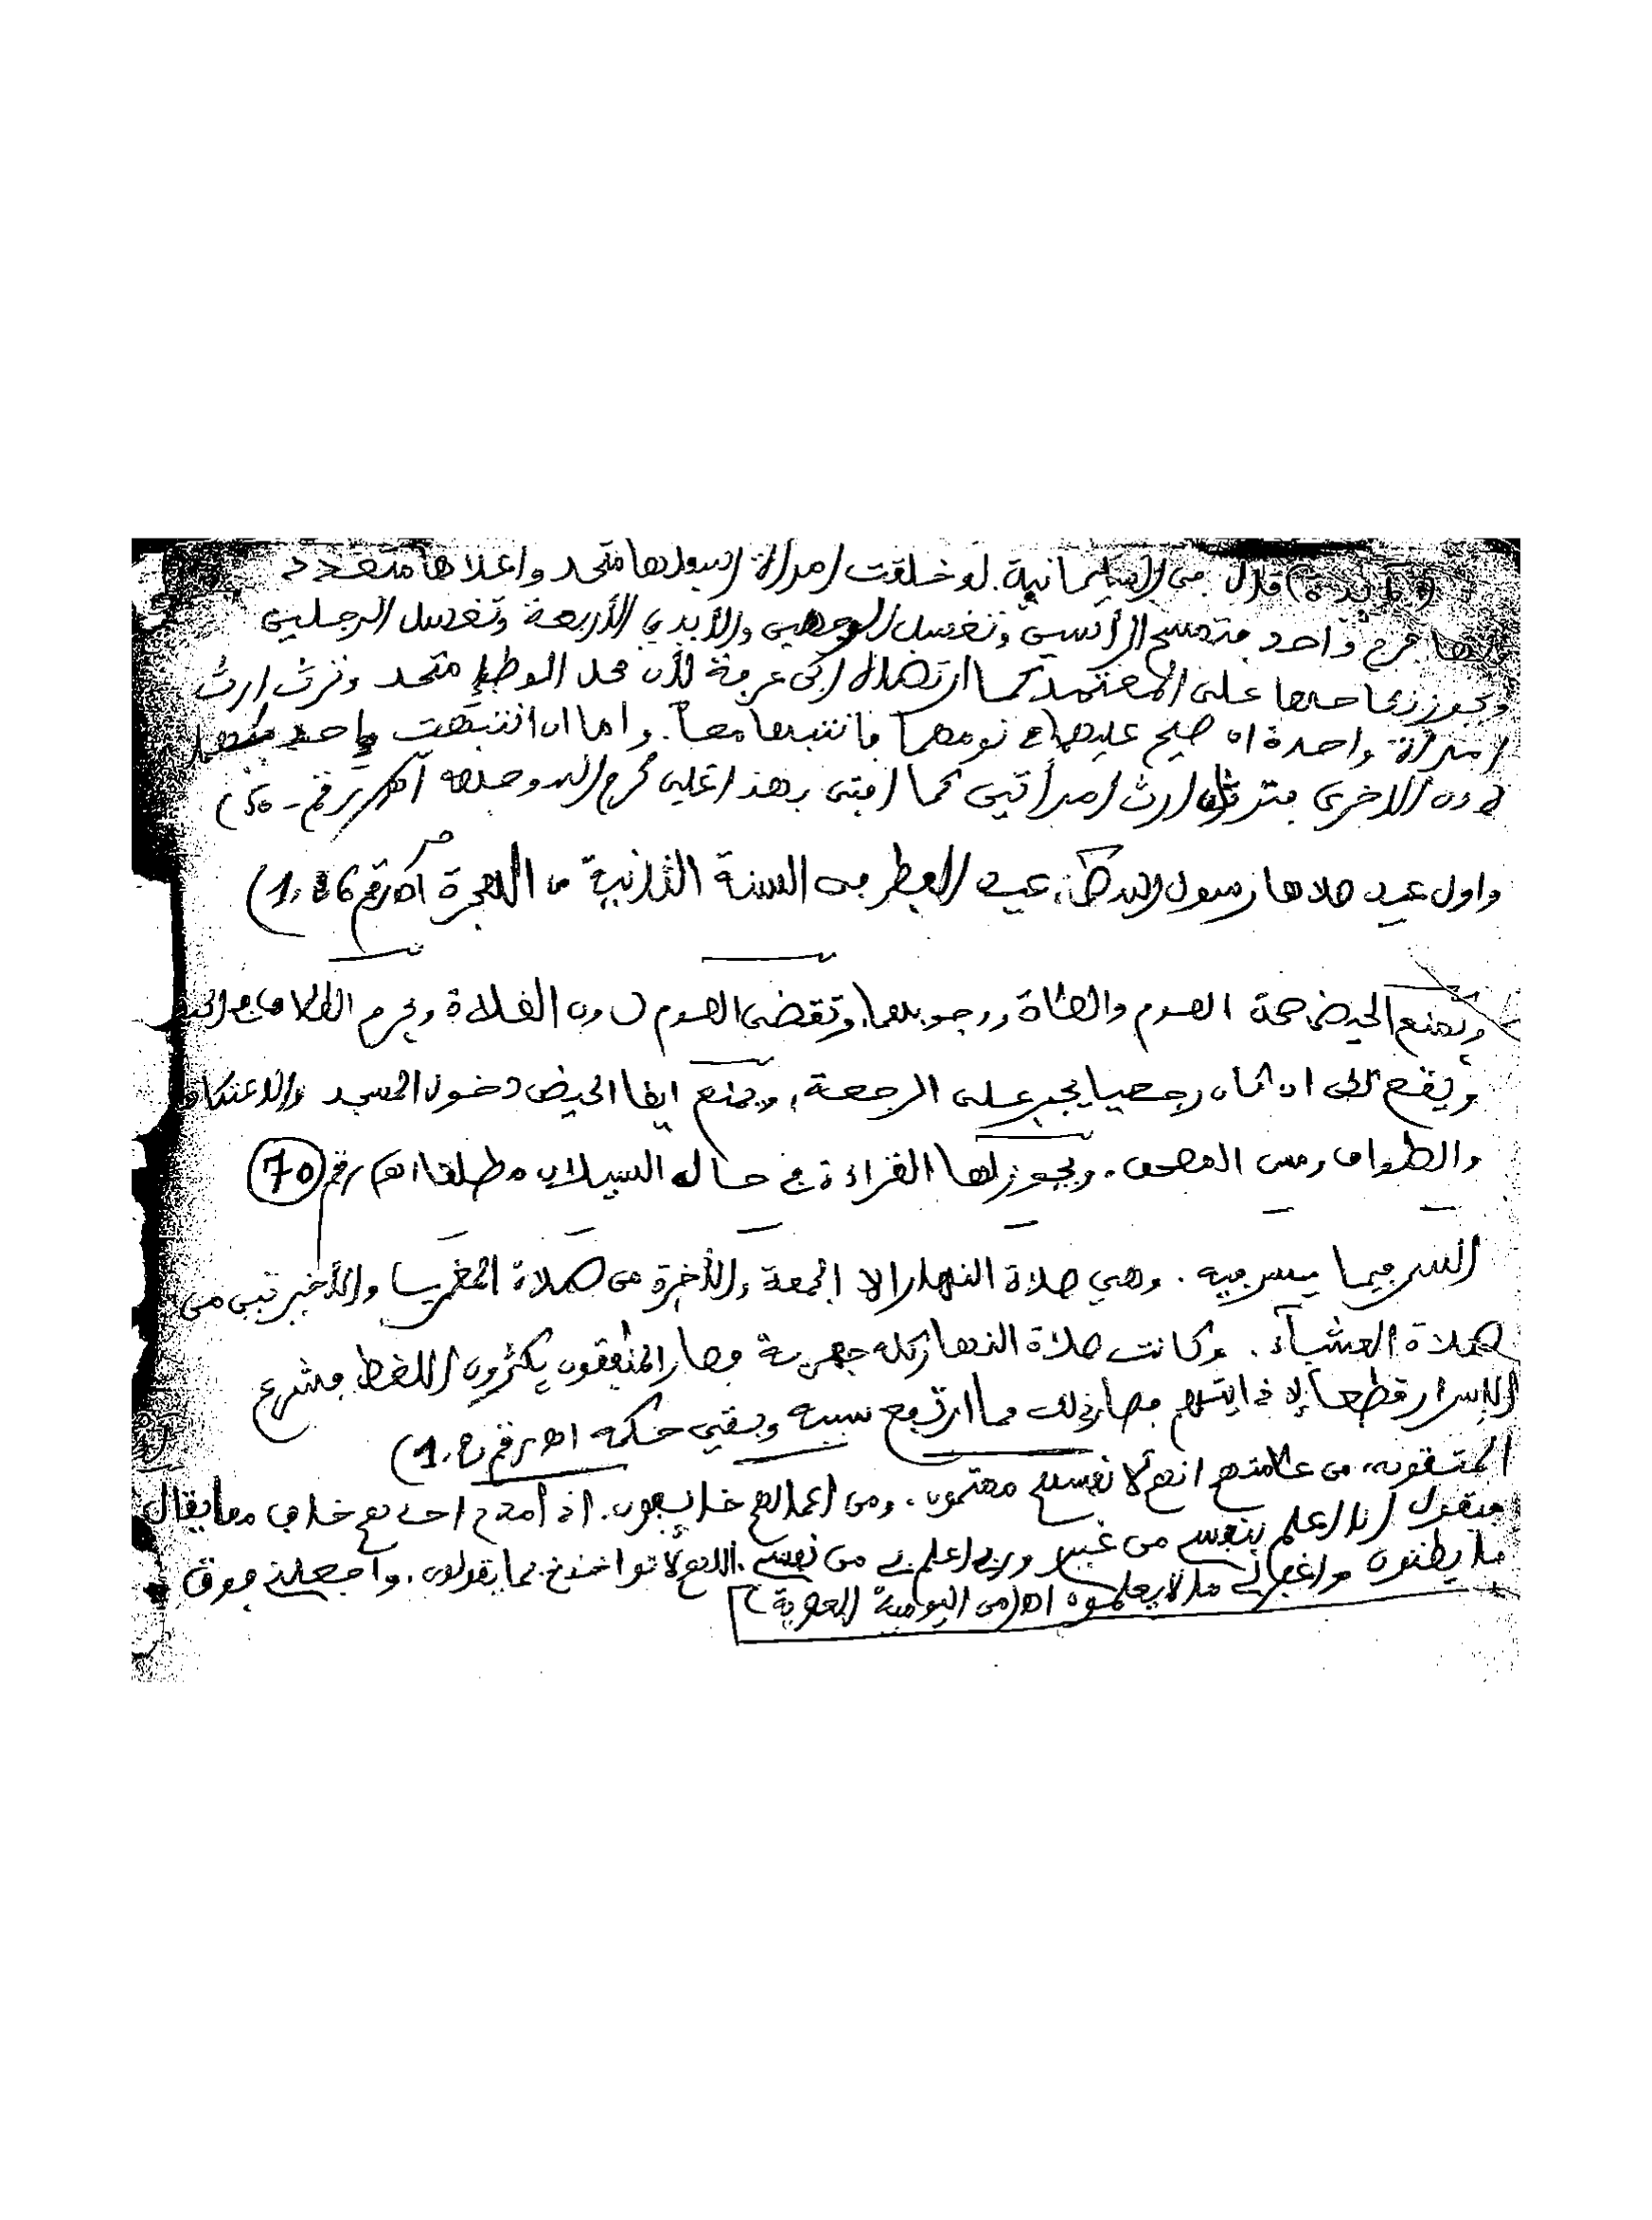 (فائدة) قال في السليمانية. لو خلقت امرأة اسفلها متحد واعلاها متعدد
ولها فرج واحد فتمسح الرأسين وتغسل الوجهين والأيدي الأربعة وتغسل الرجلين
ويجوز نكاحها على المعتمد كما ارتضاه ابن عرفة لأن محل الوطإ متحد وترث ارث
امرأة واحدة ان صيح عليهما في نومهما فانتبها معاً. واما ان انتبهت واحدة منهما
دون الاخرى فترثان ارث امرأتين كما افتى بهذا على كرم الله وجهه اهـ رقم
واول عيد صلاها رسول الله ص، عيد الفطر في السنة الثانية من الهجرة اهـ رقم
ويمنع الحيض صحة الصوم والصلاة ووجوبهما، وتقضى الصوم دون الصلاة ويحرم الطلاق في الحيض
ويقع لكن ان كان رجعيا يجبر على الرجعة، ويمنع ايضا الحيض دخول المسجد والاعتكاف
والطواف ومس المصحف. ويجوز لها القراءة في حال السيلان مطلقا اهـ رقم 70
السر فيما يسر فيه. وهي صلاة النهار الا الجمعة والأخيرة من صلاة المغرب والأخيرتين من
صلاة العشاء. وكانت صلاة النهار كله جهرية فصار المنافقون يكثرون اللغط فشرع
الإسرار قطعا لإذايتهم فصار ذلك مما ارتفع سببه وبقي حكمه اهـ رقم
المتقون، من علامتهم انهم لأنفسهم متهمون. ومن اعمالهم خائفون. اذا مدح احدهم خاف مما يقال
فيقول انا اعلم بنفسي من غيري وربي اعلم بي من نفسي. اللهم لا تواخذني بما يقولون. واجعلني فوق
ما يظنون واغفر لي ما لا يعلمون اهـ (من اليومية العصرية)